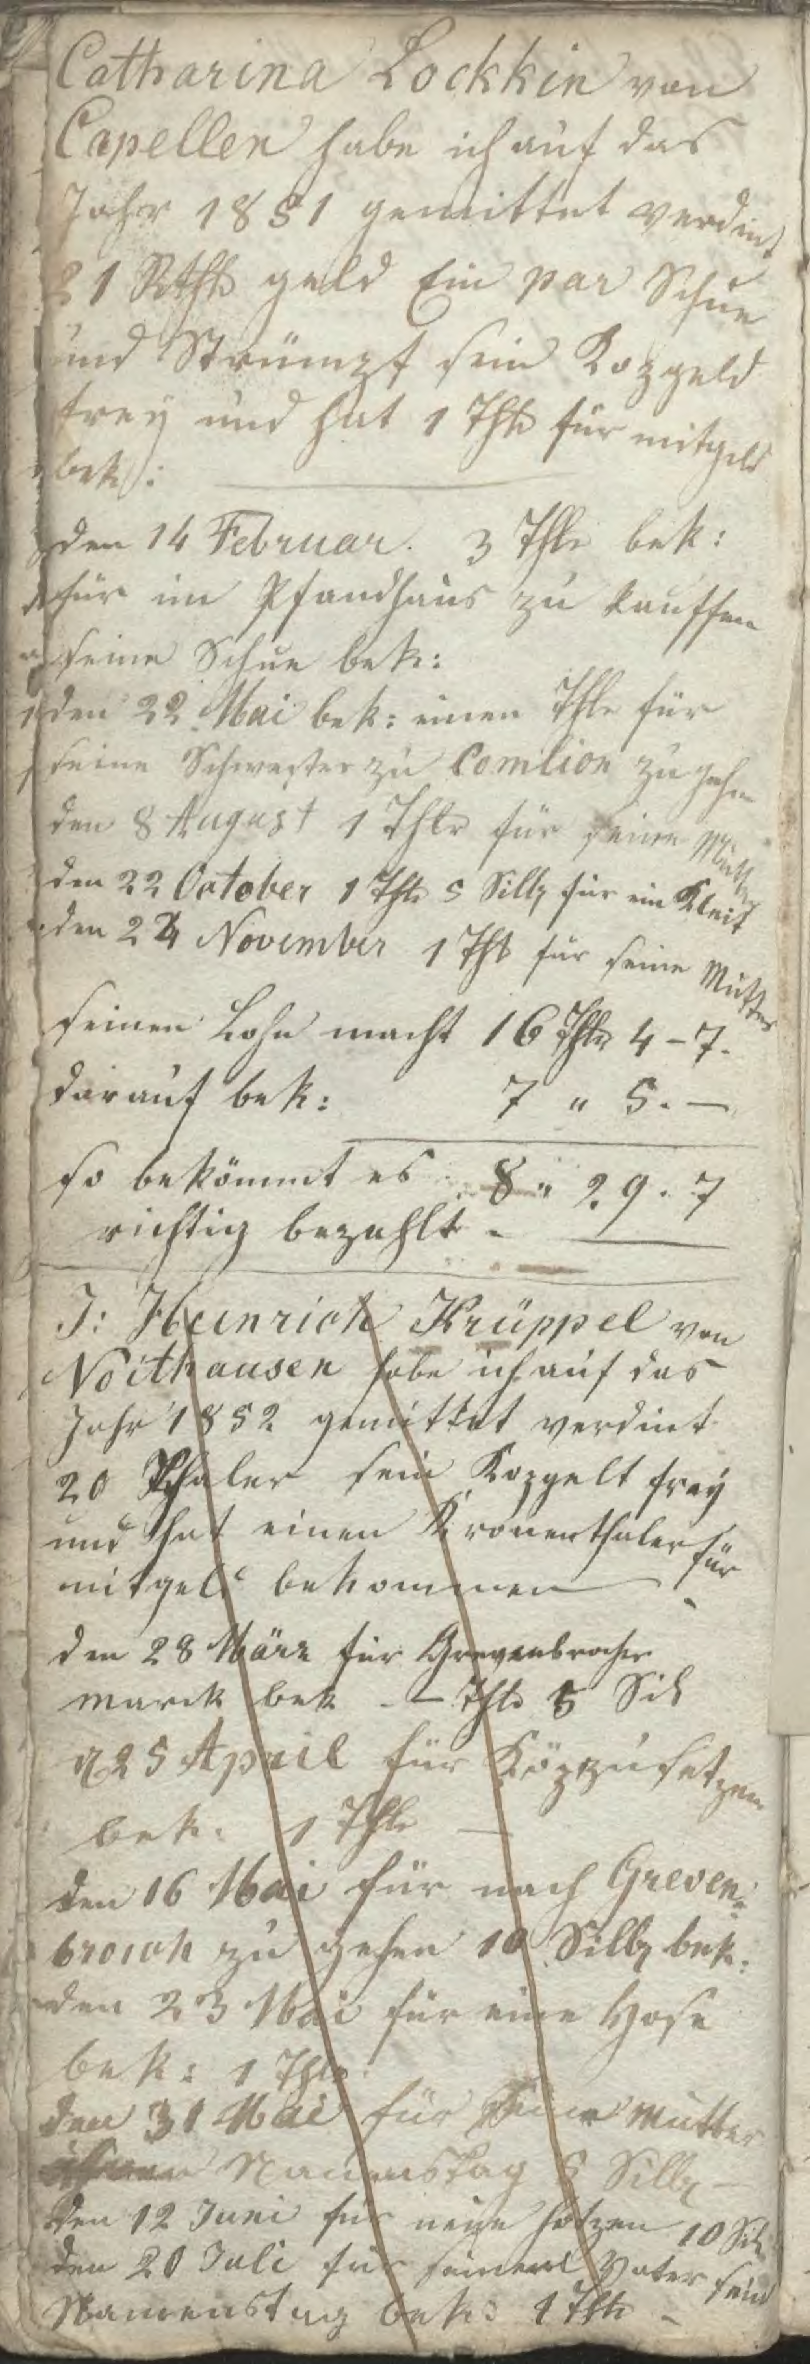 Catharina Lockkin von
Capellen habe ich auf das
Jahr 1851 gemittet verdint
21 Rthlr geld Ein par Schue
und Strümpf sein Kopgeld
frey und hat 1 Thlr für mitgeld
bek:
den 14 Februar. 3 Thlr bek:
für im Pfandhaus zu kauffen
seine Schue bek:
den 22 Mai bek: einen Thlr für
seine Schwester zu Comilion zu gehn
den 8 August 1 Thlr für seine Mutter
den 22 October 1 Thlr 5 Sillg für ein Kleit
den 24 November 1 Thlr für seine Mutter
seinen Lohn macht 16 Thlr 4-7.
darauf bek: 7 " 5. —
so bekömmt es 8 " 29. 7
richtig bezahlt -
J: Heinrich Krüppel von
Noithausen habe ich auf das
Jahr 1852 gemittet verdint
20 Thaler sein Kopgelt frey
und hat einen Kronenthaler für
mitgeld bekommen
den 28 März für Grevenbrocher
marck bek. — Thlr 5 Sil
25 April für Köpzusetzen
bek: 1 Thlr —
den 16 Mai für nach Greven-
broich zu gehen 10 Sillg bek:
den 23 Mai für eine Hose
bek: 1 Thlr
den 31 Mai für seine Mutter
Namenstag 5 Sillg
den 12 Juni für neue 10 Sil
den 20 Juli für seinen Vater sein
Namenstag bek: 1 Thlr -